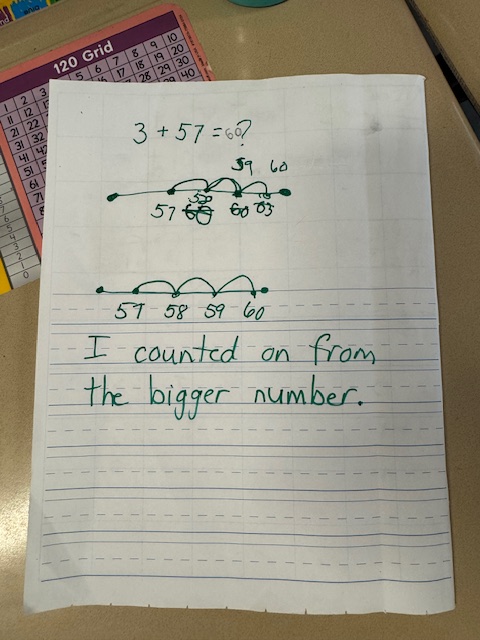 120 Grid
5 6 7 8 9 10
16 17 18 19 20
28 29 30
40
1 2 3
11 12 13
21 22
31 32
41 42
51
61
71
3 + 57 = 60?
59 60
58
57 60 60 63
57 58 59 60
I counted on from
the bigger number.